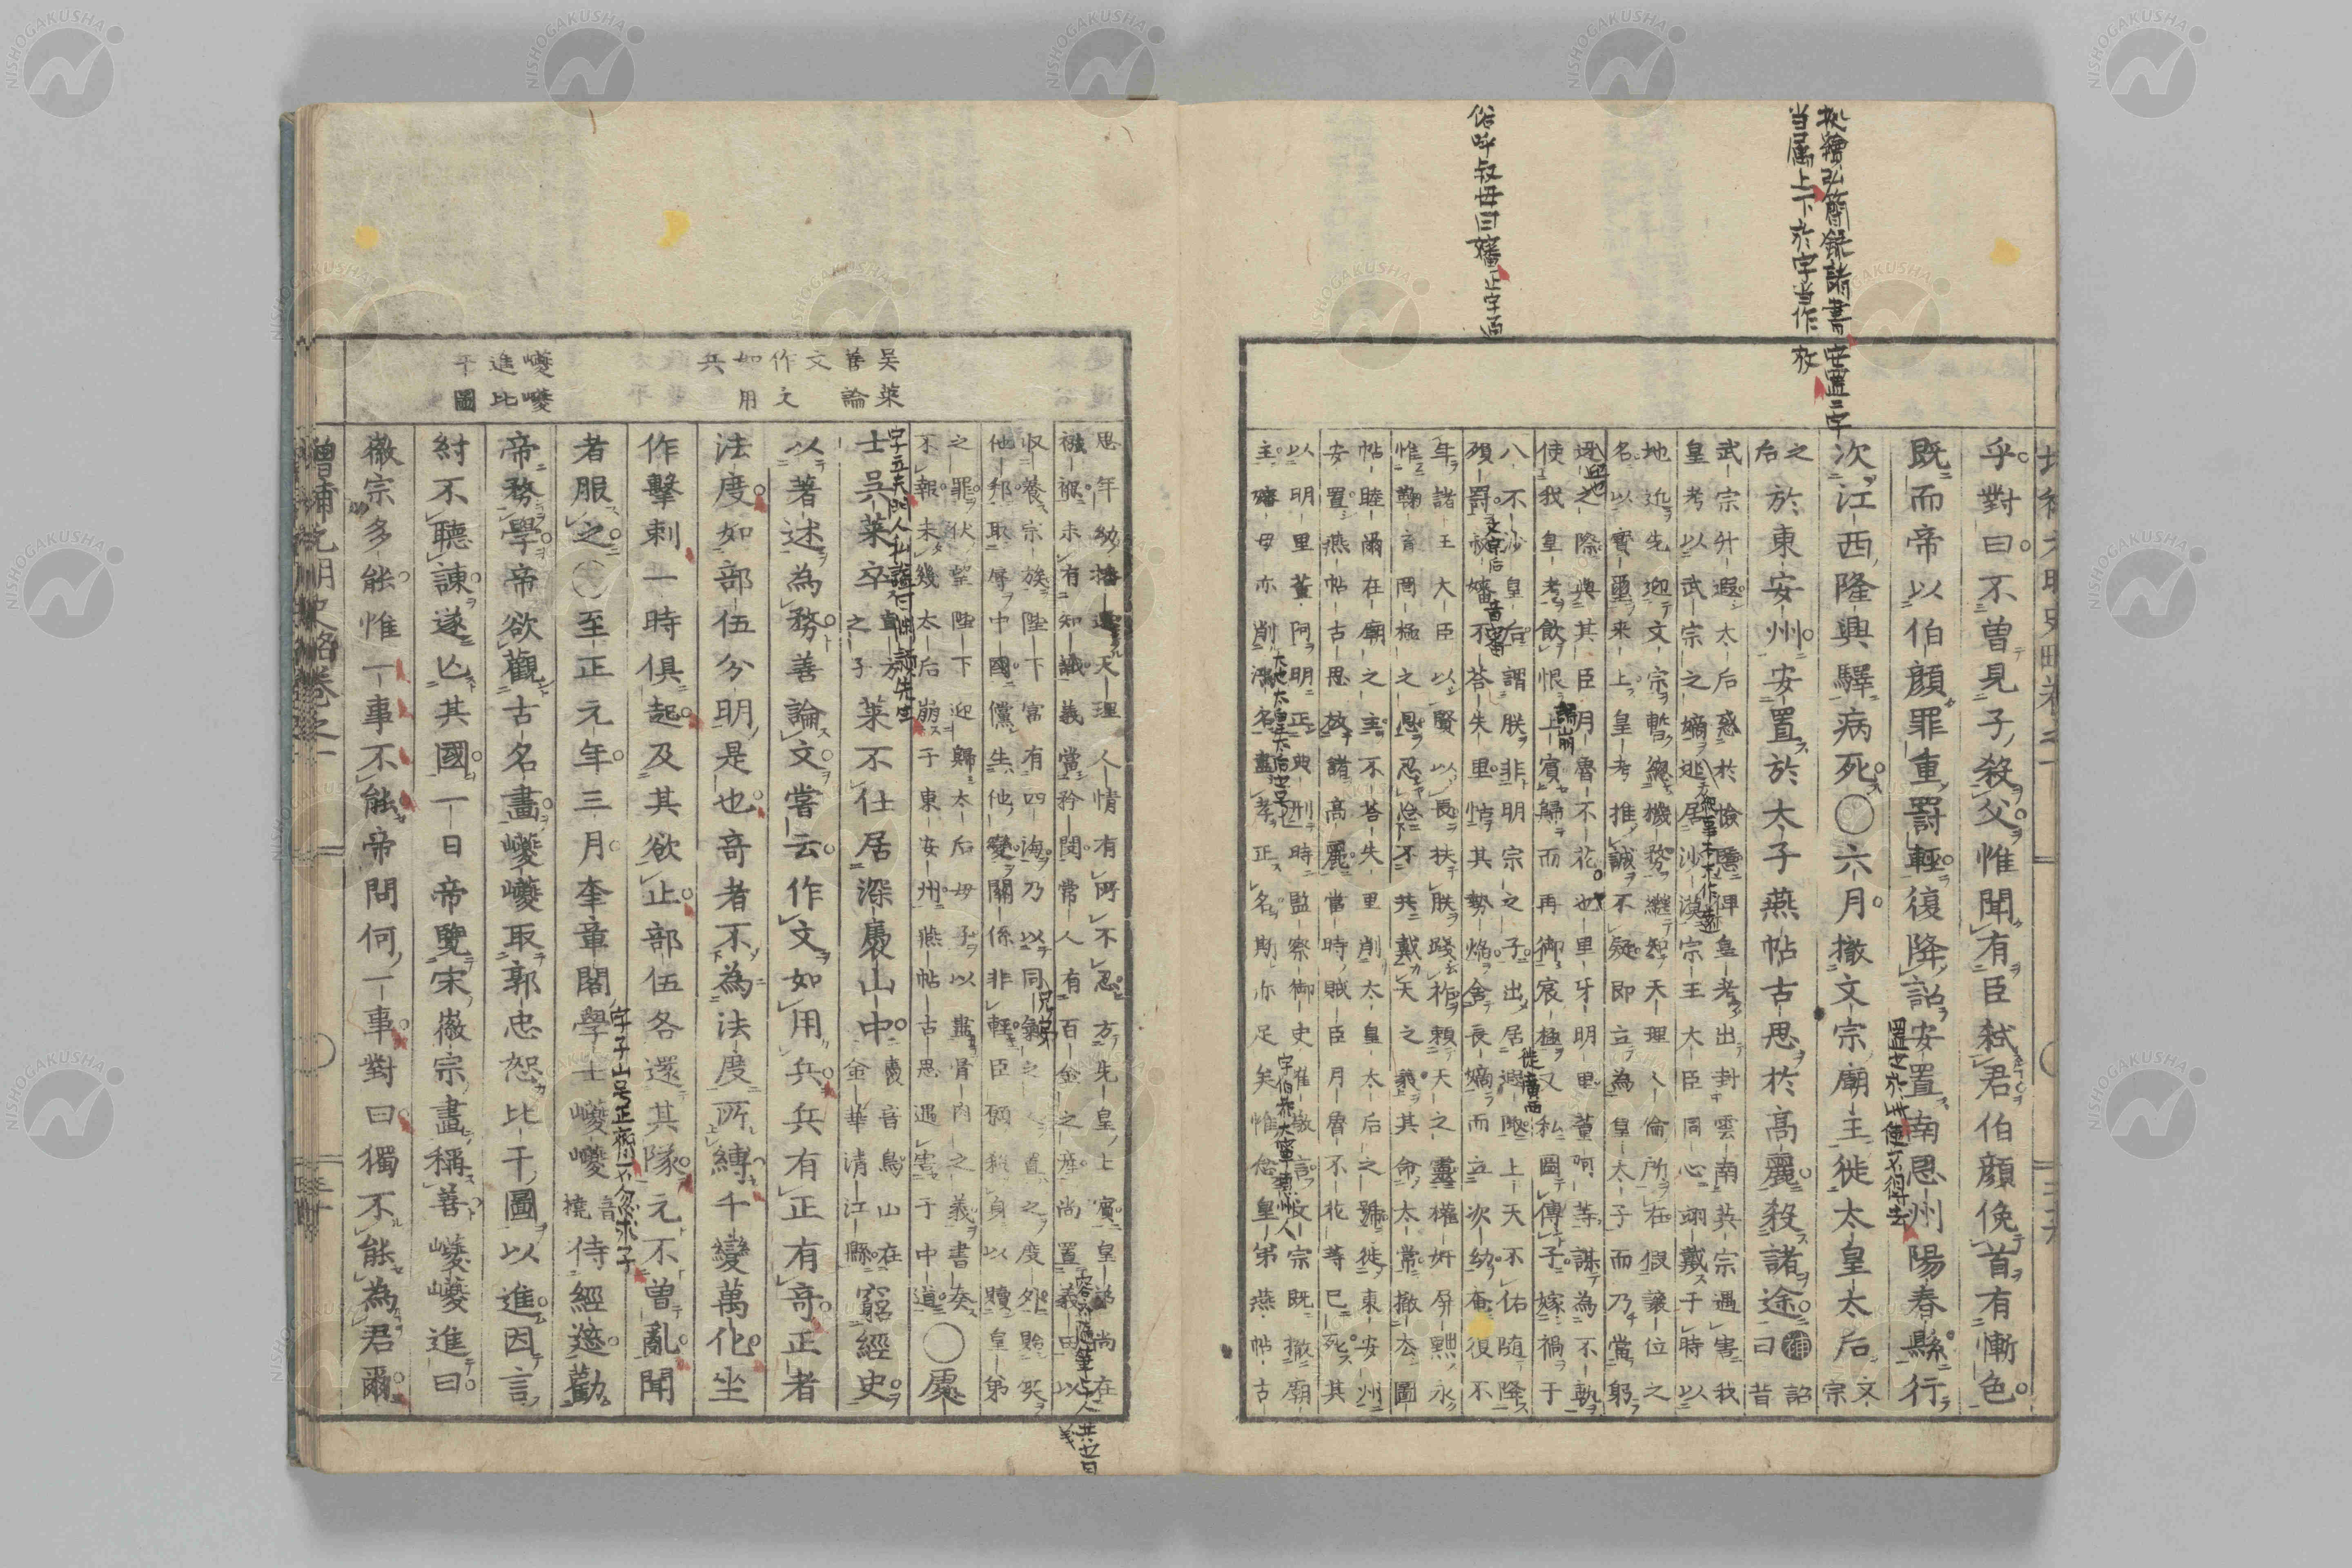 乎對曰不曽見子殺父惟聞有臣弑君伯顔俛首有慚色
既而帝以伯顔罪重罰輕復降詔安置南恩州陽春縣行
次江西隆興驛病死○六月撤文宗廟主徙太皇太后
之於東安州安置於太子燕帖古思於高麗殺諸途
武宗升遐太后惑於憸慝俾皇考出封雲南英宗遇害我
皇考以武宗之嫡逃居沙漠宗王大臣同心翊戴于時以
地近先迎文宗暫總機務繼知天理人倫所在假讓位之
名以寶璽来上皇考推誠不疑即立為皇太子而乃當躬
迓之際與其臣月魯不花也里牙明里董阿等謀為不軌
使我皇考飲恨上賓歸而再御宸極又私圖傳子嫁禍于
八不沙皇后謂朕非明宗之子出居遐陬上天不佑随降
殞罰叔嬸不荅失里怙其勢焔舍長嫡而立次幼奄復不
年諸王大臣以賢以長扶朕踐祚頼天之靈權奸屏黜永
惟鞠育罔極之恩忍忘不共戴天之義其命太常撤去圖
帖睦爾在廟之主不荅失里削太皇太后之號徙東安州
安置燕帖古思放諸高麗當時賊臣月魯不花等已死其
以明里董阿明正典刑時監察御史崔敬言文宗既撤廟
主嬸母亦削鴻名盡孝正名斯亦足矣惟念皇第燕帖古
俗呼叔母曰嬸
当属上下於字当作放
思年幼播遷天理人情有所不忍方先皇上賓皇弟尚在
襁褓未有知識義當矜閔常人有百金之産尚置義田以
収養宗族陛下富有四海乃以同氣之人置之度外貽笑
他邦取辱中國儻生他變關係非輕臣願殺身以贖皇第
之罪伏望陛下迎歸太后母子以盡骨肉之義書奏
不報未幾太后崩于東安州燕帖古思遇害于中道○處
士吳萊卒直方之子萊不仕居深褭山中褭音鳥山在金華清江縣窮經史
以著述為務善論文嘗云作文如用兵兵有正有竒正者
法度如部伍分明是也竒者不為法度所縛千變萬化坐
作擊刺一時俱起及其欲止部伍各還其隊元不曽亂聞
者服之○至正元年三月奎章閣學士巙巙音撓侍經筵勸
帝務學帝欲觀古名畫巙巙取郭忠恕比干圖以進因言
紂不聽諫遂亡其國一日帝覽宋徽宗畫稱善巙巙進曰
徽宗多能惟一事不能帝問何一事對曰獨不能為君爾
吳萊善論文作文如用兵
巙巙進比干圖
字子山号正齋